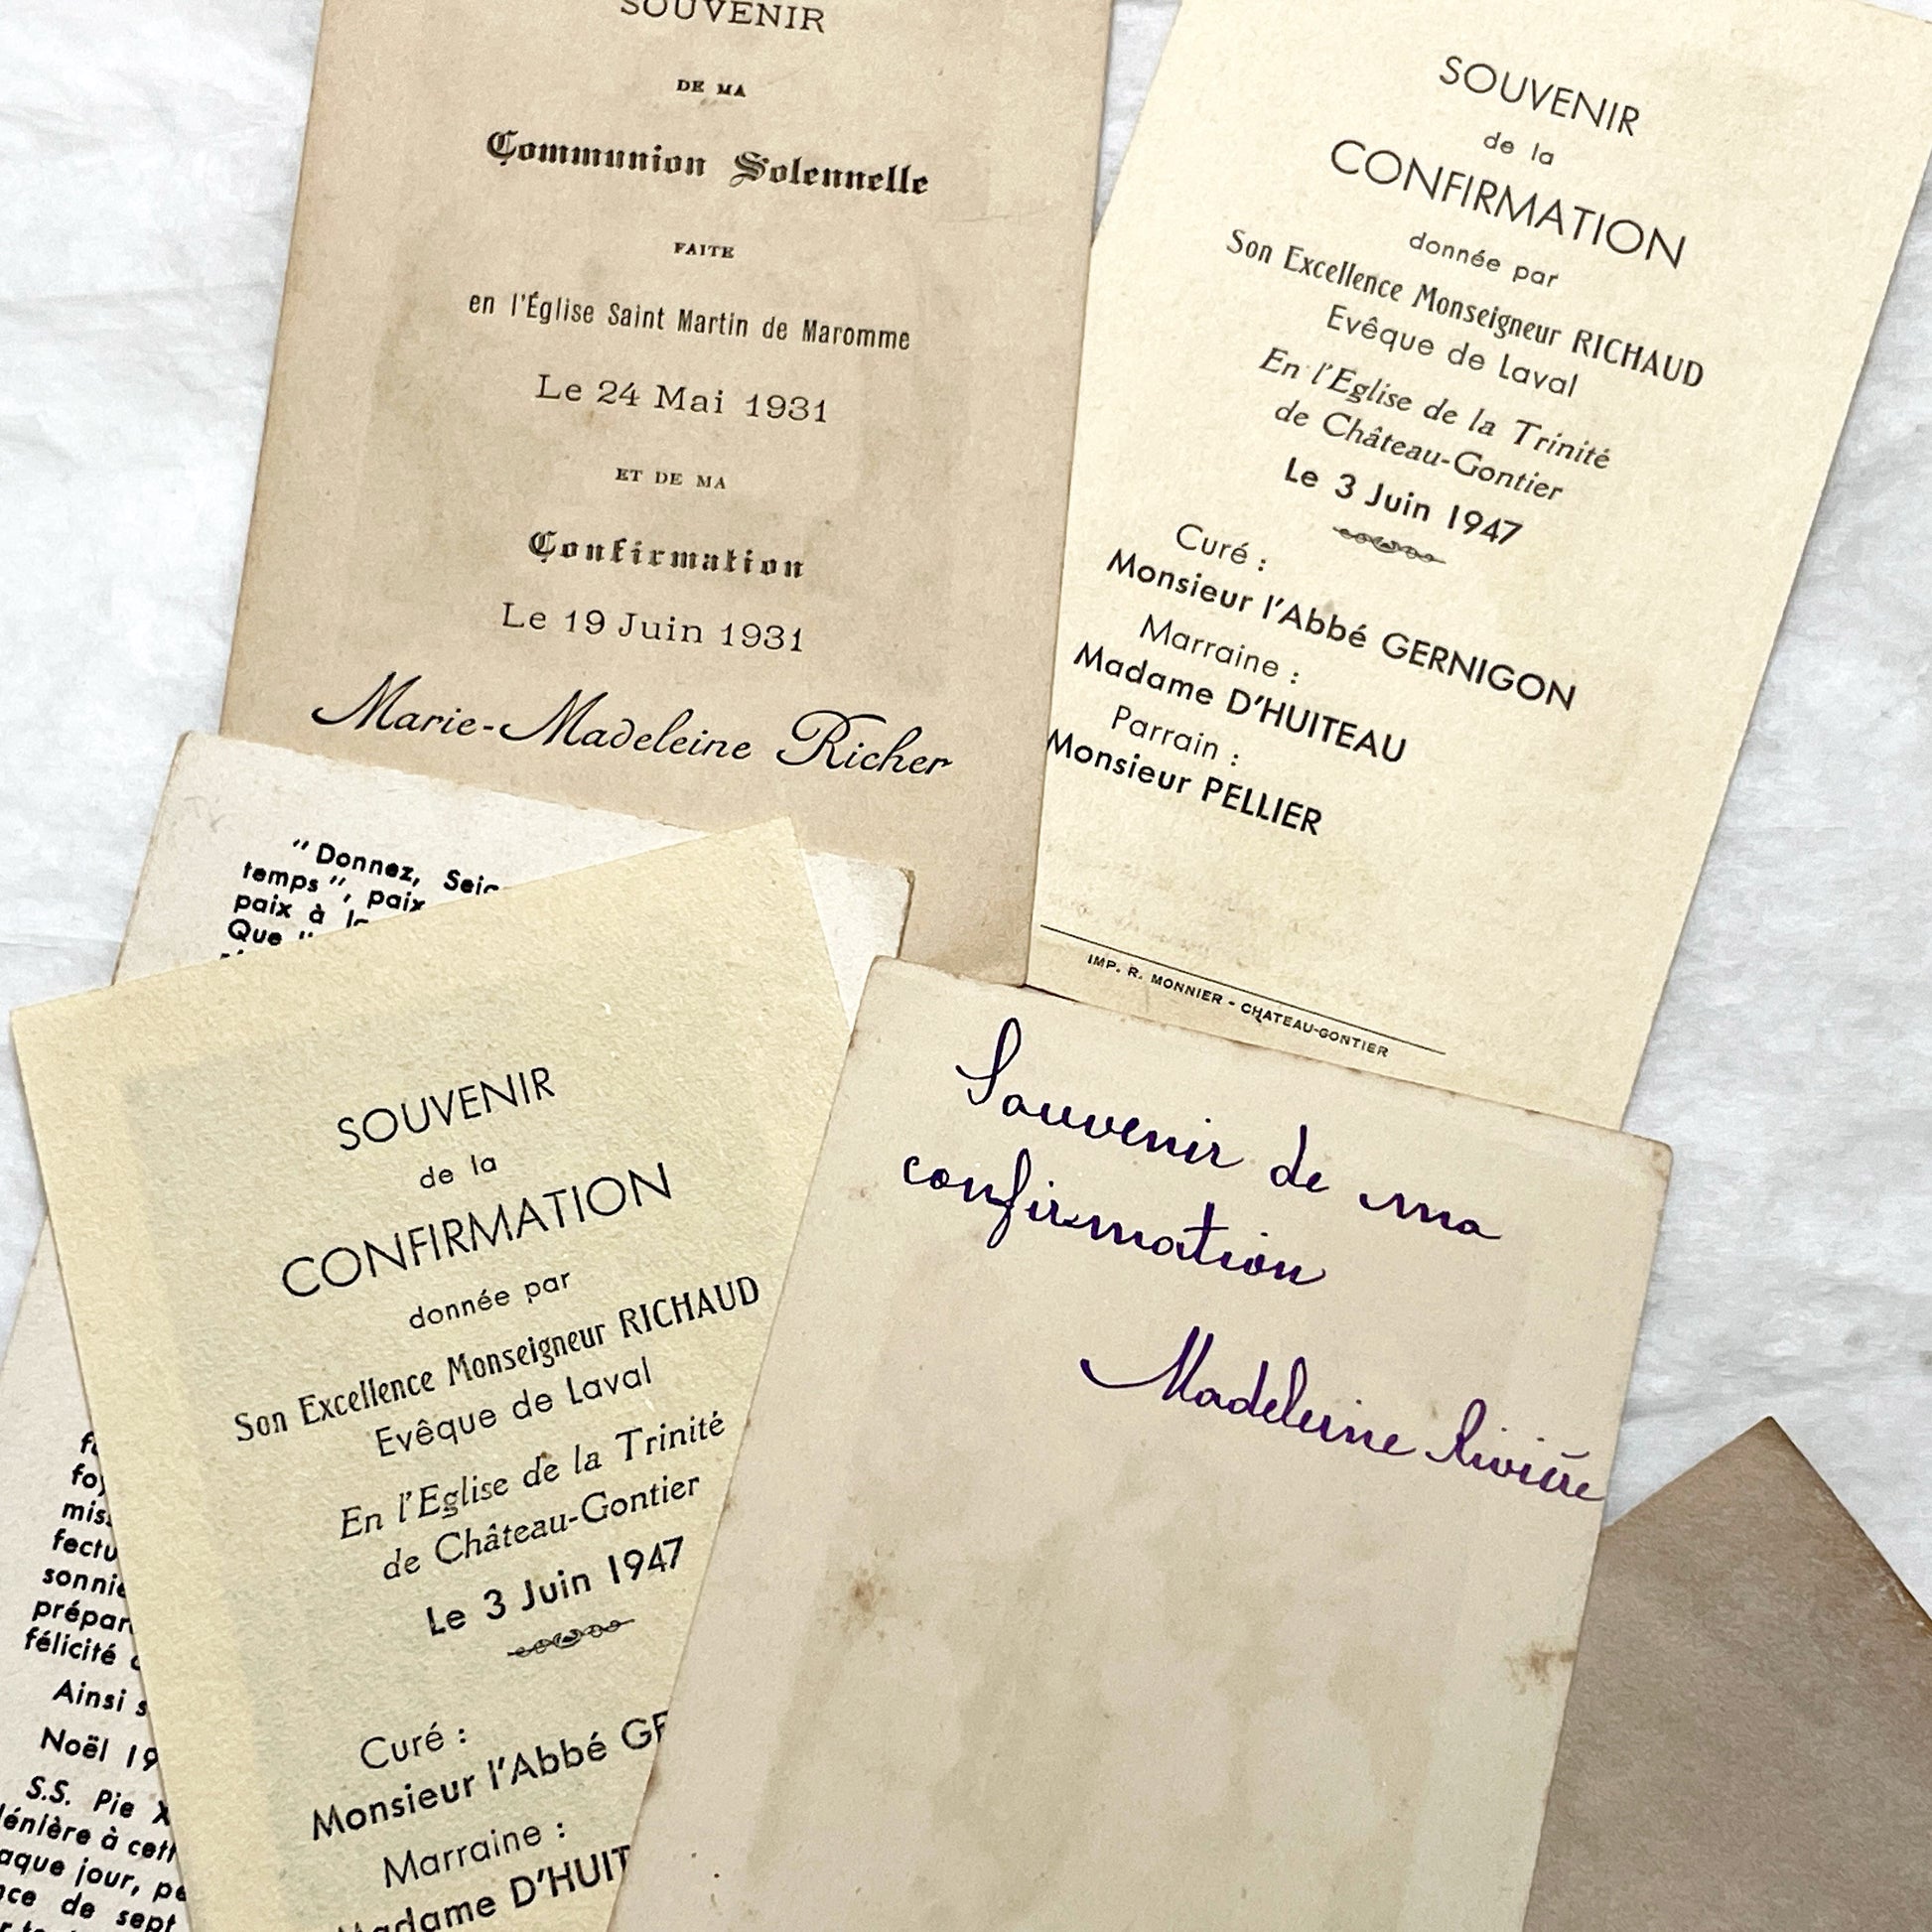 SOUVENIR
DE MA
Communion Solennelle
FAITE
en l'Église Saint Martin de Maromme
Le 24 Mai 1931
ET DE MA
Confirmation
Le 19 Juin 1931
Marie-Madeleine Richer
SOUVENIR
de la
CONFIRMATION
donnée par
Son Excellence Monseigneur RICHAUD
Evêque de Laval
En l'Eglise de la Trinité
de Château-Gontier
Le 3 Juin 1947
Curé :
Monsieur l'Abbé GERNIGON
Marraine :
Madame D'HUITEAU
Parrain :
Monsieur PELLIER
IMP. R. MONNIER - CHATEAU-GONTIER
"Donnez,
temps", paix
paix à
Que
SOUVENIR
de la
CONFIRMATION
donnée par
Son Excellence Monseigneur RICHAUD
Evêque de Laval
En l'Eglise de la Trinité
de Château-Gontier
Le 3 Juin 1947
Curé :
Monsieur l'Abbé
Marraine :
Madame D'HUIT
Souvenir de ma
confirmation
Madeleine Rivière
foy
miss
fectu
sonnie
prépar
félicité
Ainsi s
Noël 19
S.S. Pie X
lénière à cett
aque jour, pe
nce de sept